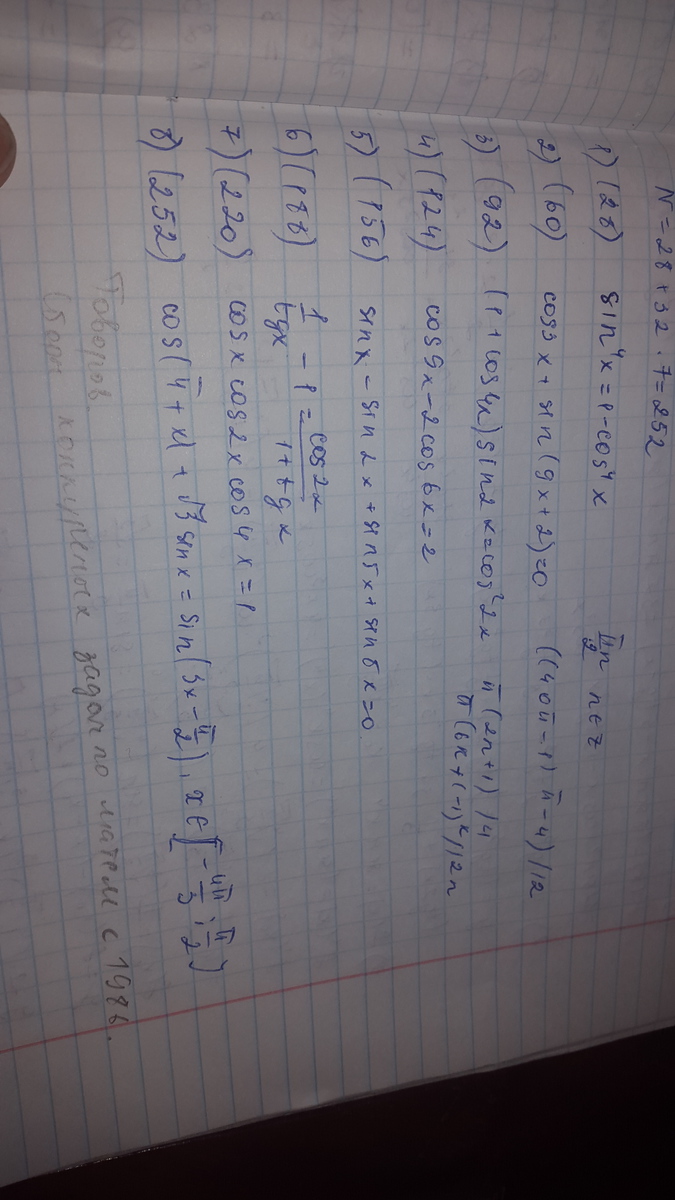 N = 28 + 32 · 7 = 252
1) (28) sin⁴x = 1 - cos⁴x πn/2 n∈z
2) (60) cos3x + sin(9x+2)=0 ((40π-1)π-4)/12
3) (92) (1+cos4x)sin2x=cos²2x π(2n+1)/4
π(6n+(-1)ᵏ/12n
4) (124) cos9x-2cos6x=2
5) (156) sinx - sin2x + sin5x + sin8x=0
6) (188) 1/tgx - 1 = cos2x/(1+tgx)
7) (220) cosx cos2x cos4x = 1
8) (252) cos(π+x) + √3 sinx = sin(3x - π/2), x∈[-4π/3; π/2)
Говоров.
Сборн конкурсных задач по матем с 1986.